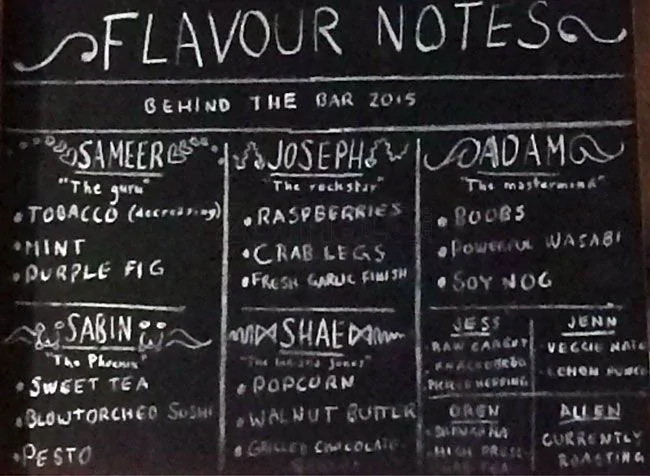 FLAVOUR NOTES
BEHIND THE BAR 2015
SAMEER
"The guru"
• TOBACCO (decreasing)
• MINT
• PURPLE FIG
JOSEPH
"The rockstar"
• RASPBERRIES
• CRAB LEGS
• FRESH GARLIC FINISH
ADAM
"The mastermind"
• BOOBS
• POWERFUL WASABI
• SOY NOG
SABIN
"The Phoenix"
• SWEET TEA
• BLOWTORCHED SUSHI
• PESTO
SHAE
"The Jones"
• POPCORN
• WALNUT BUTTER
• GRILLED CHOCOLATE
JESS
RAW CARROT
PICKLED HERRING
JENN
VEGGIE
OREN
HIGH
ALLEN
CURRENTLY
ROASTING